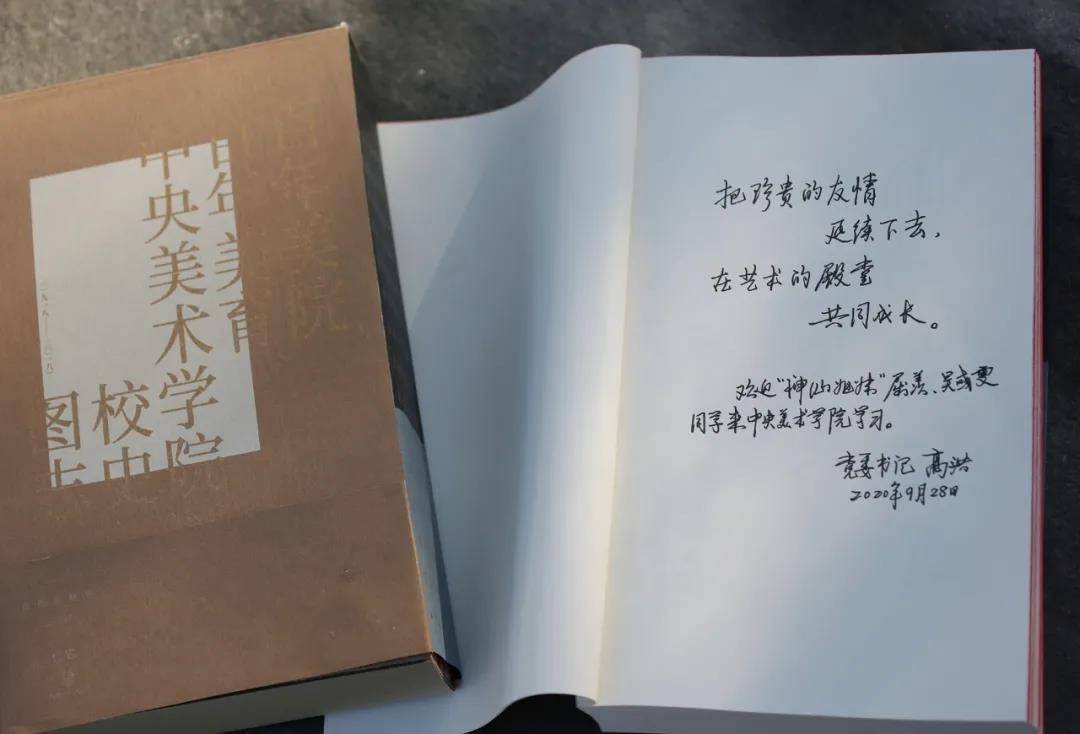 百年美育
中央美术学院
校史
图志
一九一八—二〇一八
百年美院
把珍贵的友情
延续下去，
在艺术的殿堂
共同成长。
欢迎“神仙姐妹”屈羡、吴彧雯
同学来中央美术学院学习。
党委书记 高洪
2020年9月28日